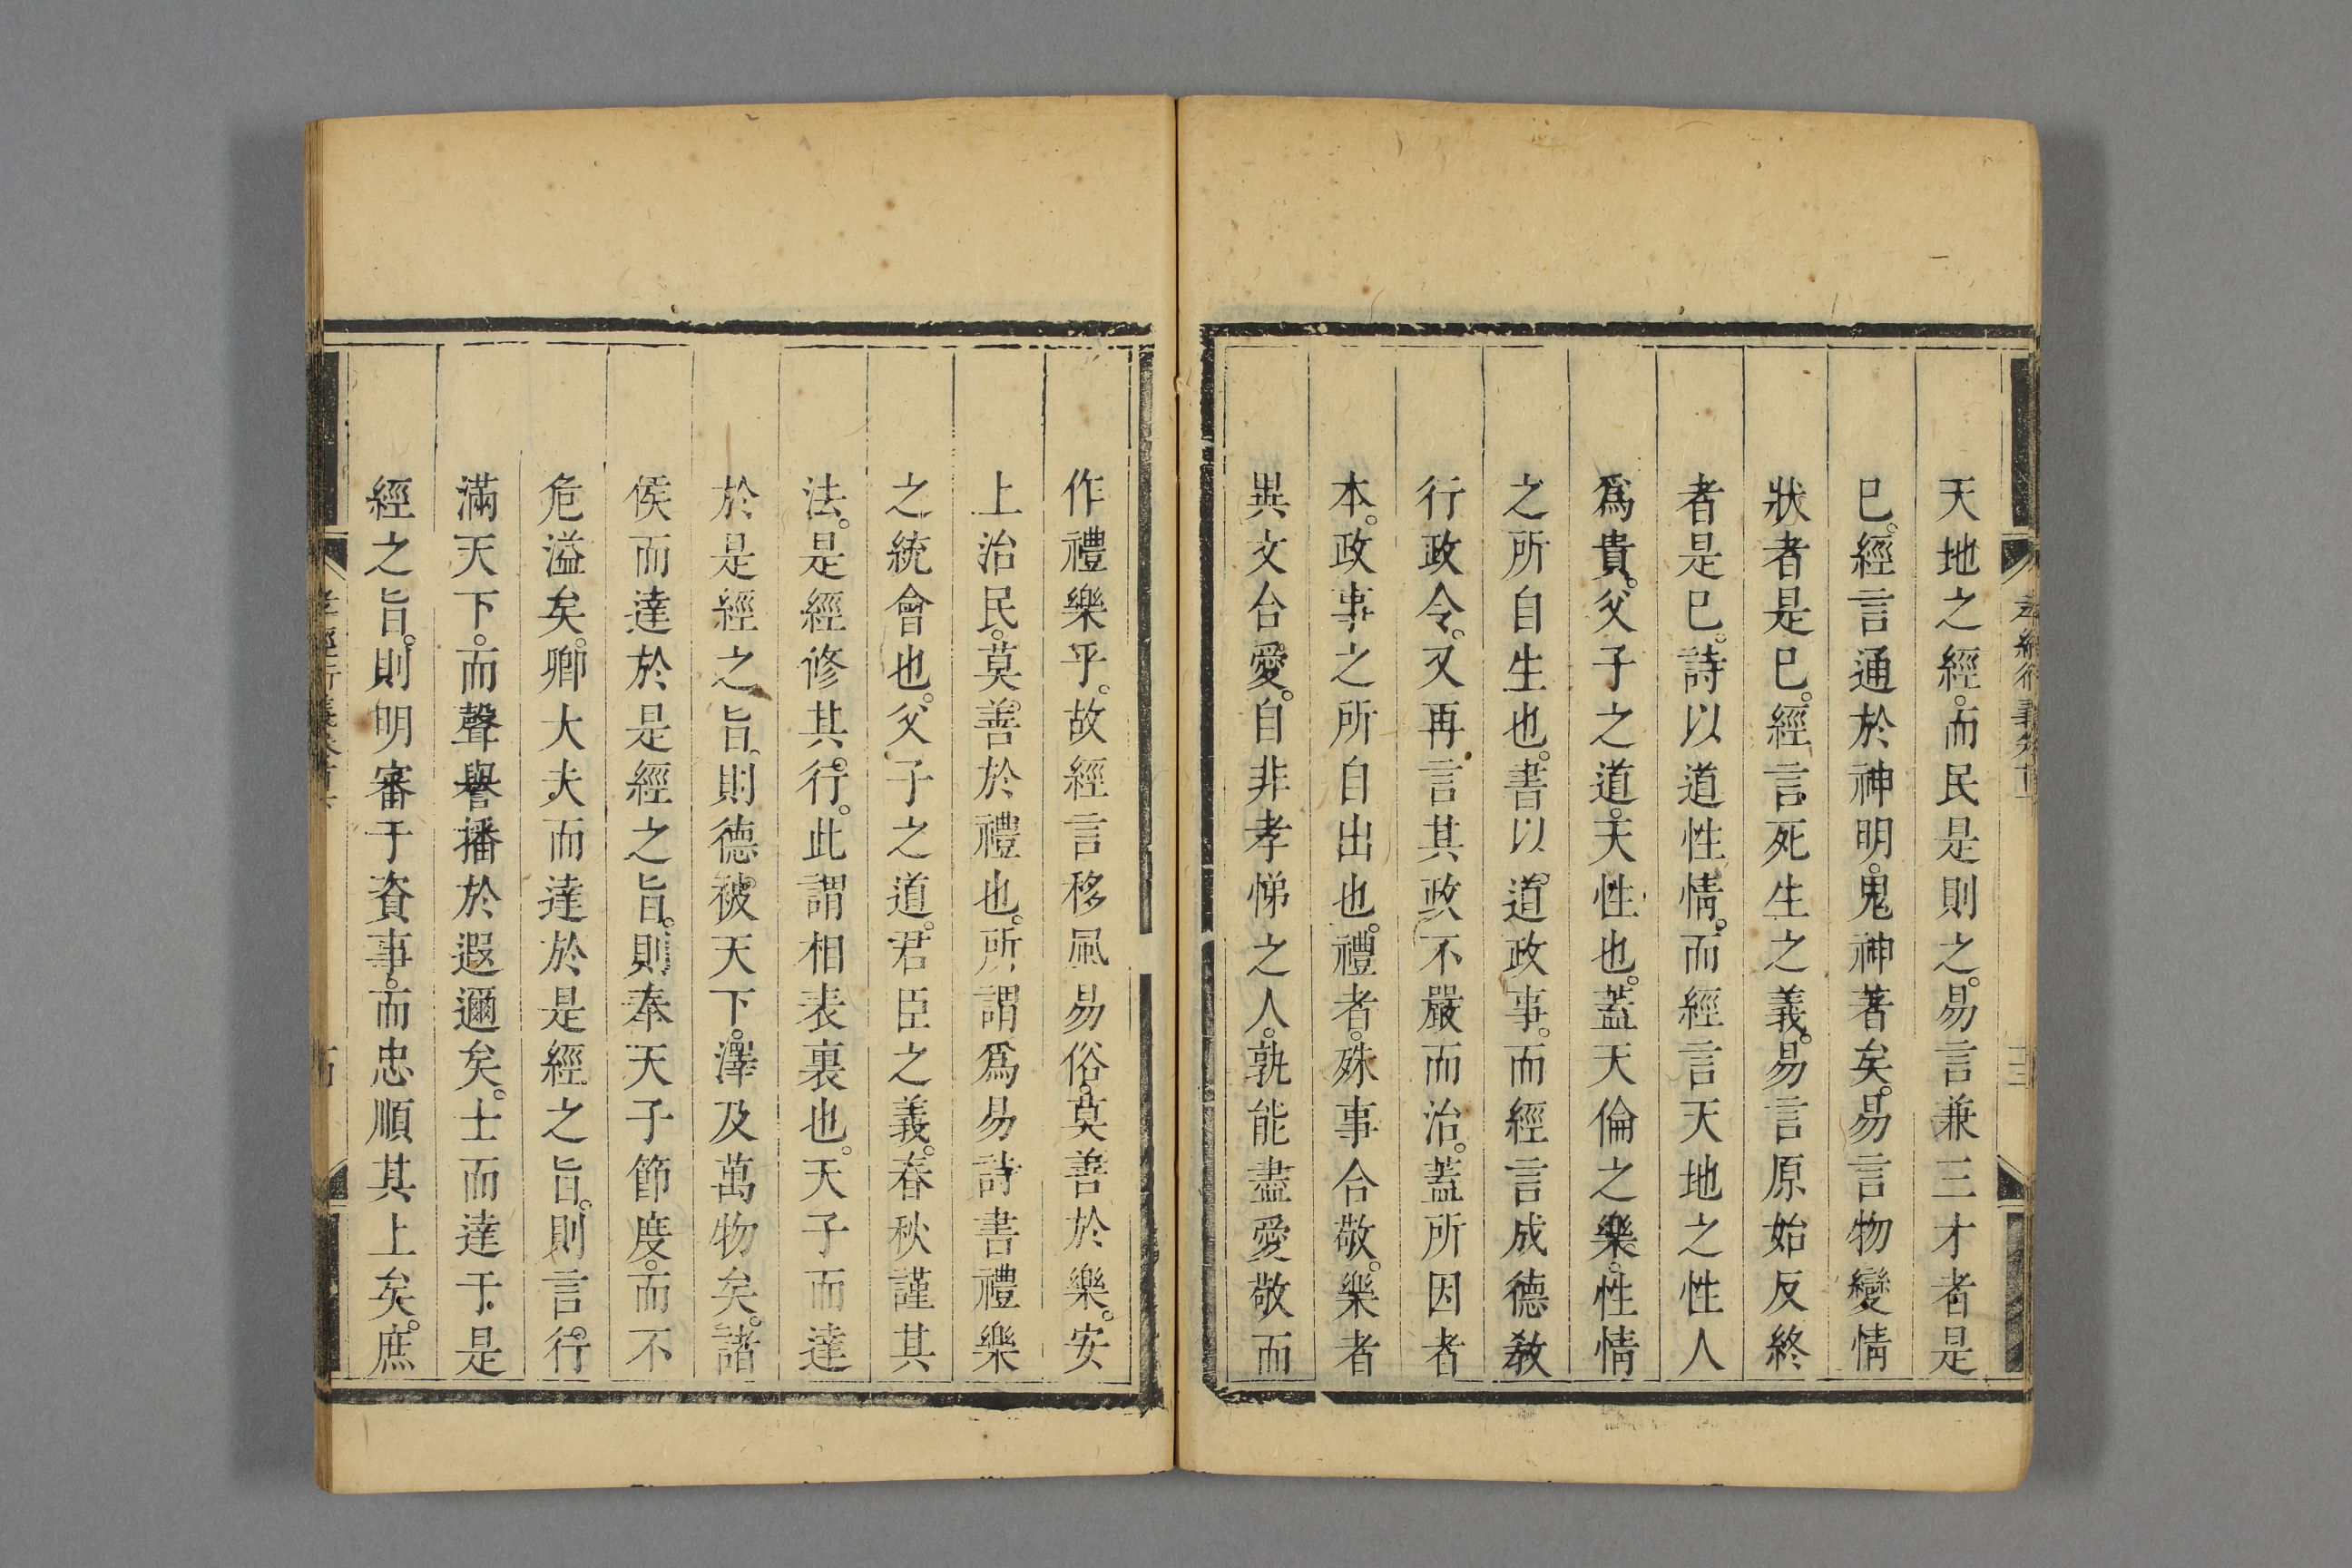 天地之經。而民是則之。易言兼三才者是
巳。經言通於神明。鬼神著矣。易言物變情
狀者是巳。經言死生之義。易言原始反終
者是巳。詩以道性情。而經言天地之性人
爲貴。父子之道。天性也。蓋天倫之樂。性情
之所自生也。書以道政事。而經言成德敎
行政令。又再言其政不嚴而治。蓋所因者
本。政事之所自出也。禮者。殊事合敬。樂者
異文合愛。自非孝悌之人。孰能盡愛敬而
作禮樂乎。故經言移風易俗。莫善於樂。安
上治民。莫善於禮也。所謂爲易詩書禮樂
之統會也。父子之道。君臣之義。春秋謹其
法。是經修其行。此謂相表裏也。天子而達
於是經之旨。則德被天下。澤及萬物矣。諸
侯而達於是經之旨。則奉天子節度。而不
危溢矣。卿大夫而達於是經之旨。則言行
滿天下。而聲譽播於遐邇矣。士而達于是
經之旨。則明審于資事。而忠順其上矣。庶